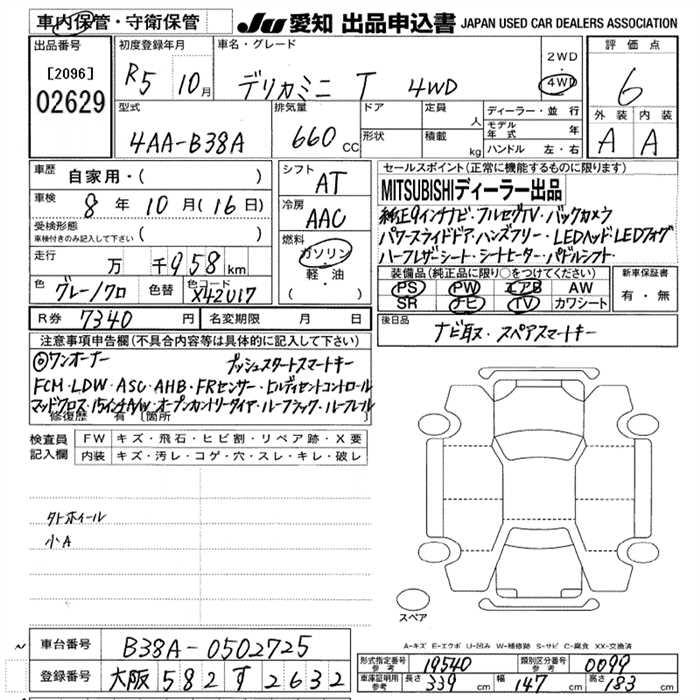 車内保管・守衛保管 JU 愛知 出品申込書 JAPAN USED CAR DEALERS ASSOCIATION
出品番号 初度登録年月 車名・グレード 評価点
[2096] R5 10月 デリカミニ T 4WD 2WD 4WD 6
02629 型式 排気量 ドア 定員 人 ディーラー・並行 外装 内装
4AA-B38A 660cc 形状 積載 kg モデル年式 年 A A
ハンドル 左・右
車歴 自家用・( ) シフト AT セールスポイント(正常に機能するものに限ります)
車検 8年 10月(16日) 冷房 AAC MITSUBISHIディーラー出品
受検形態 純正9インチナビ・フルセグTV・バックカメラ
車検付きのみ記入して下さい ( ) 燃料 パワースライドドア・ハンズフリー・LEDヘッド・LEDフォグ
走行 万 千958km ガソリン ハーフレザーシート・シートヒーター・パドルシフト
軽・油 装備品(純正品に限り○をつけてください) 新車保証書
色 グレー/クロ 色替 色コード X42U17 ( ) PS PW エアB AW 有・無
SR ナビ TV カワシート
R券 7340円 名変期限 月 日 後日品
ナビ取説・スペアスマートキー
注意事項申告欄(不具合内容等は具体的に記入して下さい)
◎ワンオーナー プッシュスタートスマートキー
FCM・LDW・ASC・AHB・FRセンサー・ヒルディセントコントロール
マッドクロス・15インチA/W・オープンカントリータイヤ・ルーフラック・ルーフレール
修復歴 有 [箇所 ]
検査員 FW キズ・飛石・ヒビ割・リペア跡・X要
記入欄 内装 キズ・汚レ・コゲ・穴・スレ・キレ・破レ
タトホイール
小A
スペア
A-キズ E-エクボ U-凹み W-補修跡 S-サビ C-腐食 XX-交換済
車台番号 B38A-0502725 形式指定番号 参考 19540 類別区分番号 参考 0099
登録番号 大阪 582 す 2632 車庫証明用 参考 長さ 339cm 幅 147cm 高さ 183cm